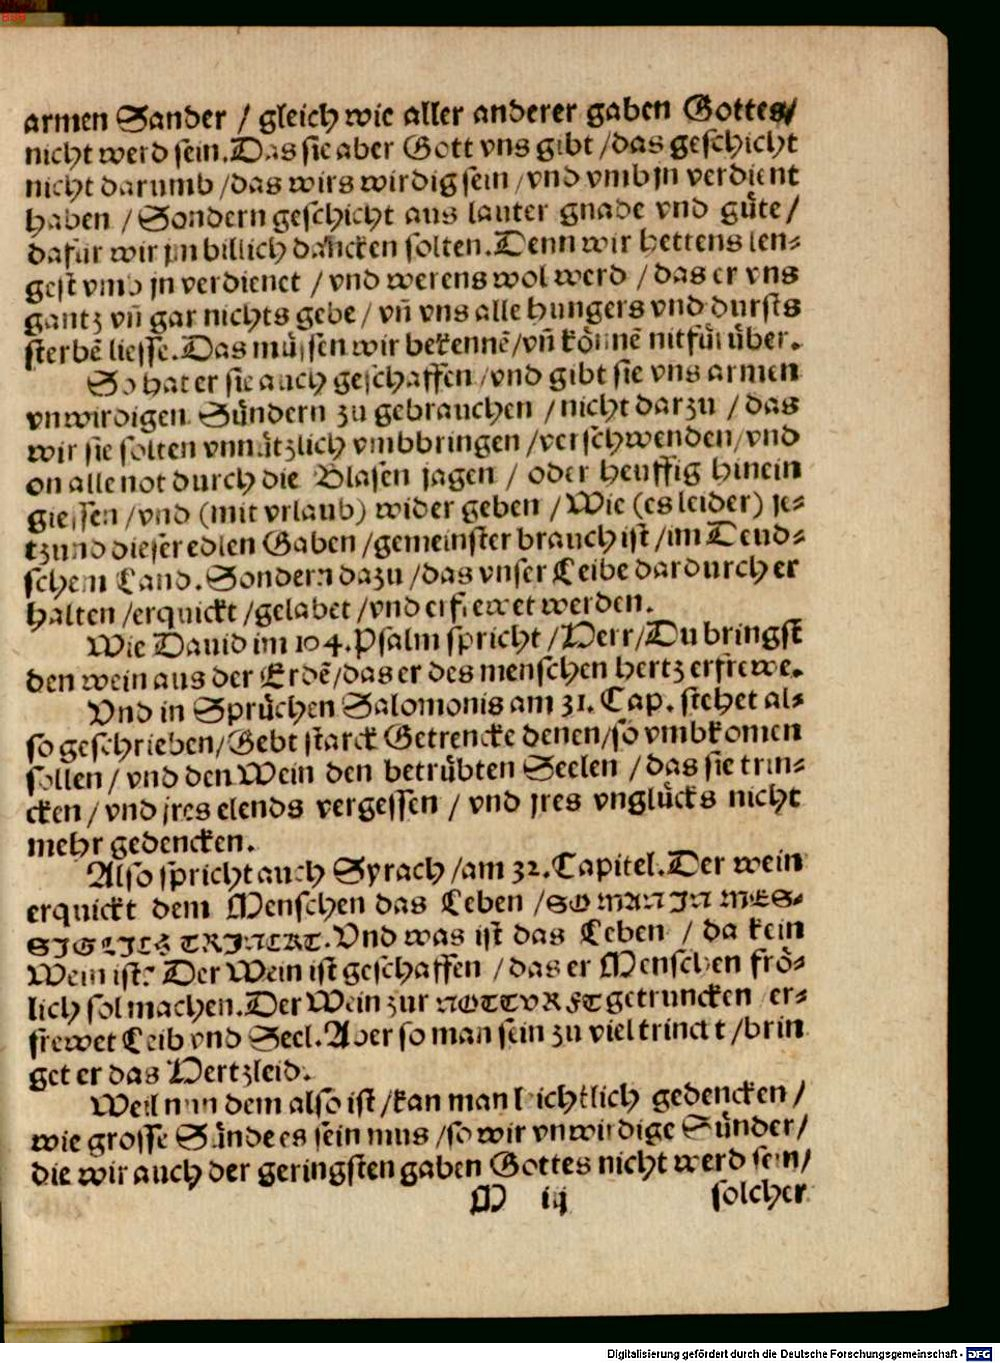 armen Sander / gleich wie aller anderer gaben Gottes/
nicht werd sein. Das sie aber Gott vns gibt / das geschicht
nicht darumb / das wirs wirdig sein / vnd vmb jn verdient
haben / Sondern geschicht aus lauter gnade vnd güte /
dafür wir jm billich dancken solten. Denn wir hettens len⸗
gest vmb jn verdienet / vnd werens wol werd / das er vns
gantz vñ gar nichts gebe / vñ vns alle hungers vnd dursts
sterbẽ liesse. Das müssen wir bekennẽ / vñ könnẽ nit fürüber.
So hat er sie auch geschaffen / vnd gibt sie vns armen
vnwirdigen Sündern zu gebrauchen / nicht darzu / das
wir sie solten vnnützlich vmbbringen / verschwenden / vnd
on alle not durch die Blasen jagen / oder heuffig hinein
giessen / vnd (mit vrlaub) wider geben / Wie (es leider) je⸗
tzund dieser edlen Gaben / gemeinster brauch ist / im Deud⸗
schem Land. Sondern dazu / das vnser Leibe dardurch er
halten / erquickt / gelabet / vnd erfrewet werden.
Wie Dauid im 104. Psalm spricht / Herr / Du bringst
den wein aus der Erdẽ / das er des menschen hertz erfrewe.
Vnd in Sprüchen Salomonis am 31. Cap. stehet al⸗
so geschrieben / Gebt starck Getrencke denen / so vmbkomen
sollen / vnd den Wein den betrübten Seelen / das sie trin⸗
cken / vnd jres elends vergessen / vnd jres vnglücks nicht
mehr gedencken.
Also spricht auch Syrach / am 32. Capitel. Der wein
erquickt dem Menschen das Leben / SO MAN IN MES⸗
SIGLICH TRINCKT. Vnd was ist das Leben / da kein
Wein ist? Der Wein ist geschaffen / das er Menschen frö⸗
lich sol machen. Der Wein zur NOTTVRFT getruncken er⸗
frewet Leib vnd Seel. Aber so man sein zu viel trinckt / brin
get er das Hertzleid.
Weil nun dem also ist / kan man leichtlich gedencken /
wie grosse Sünde es sein mus / so wir vnwirdige Sünder /
die wir auch der geringsten gaben Gottes nicht werd sein /
M iij solcher
Digitalisierung gefördert durch die Deutsche Forschungsgemeinschaft - DFG